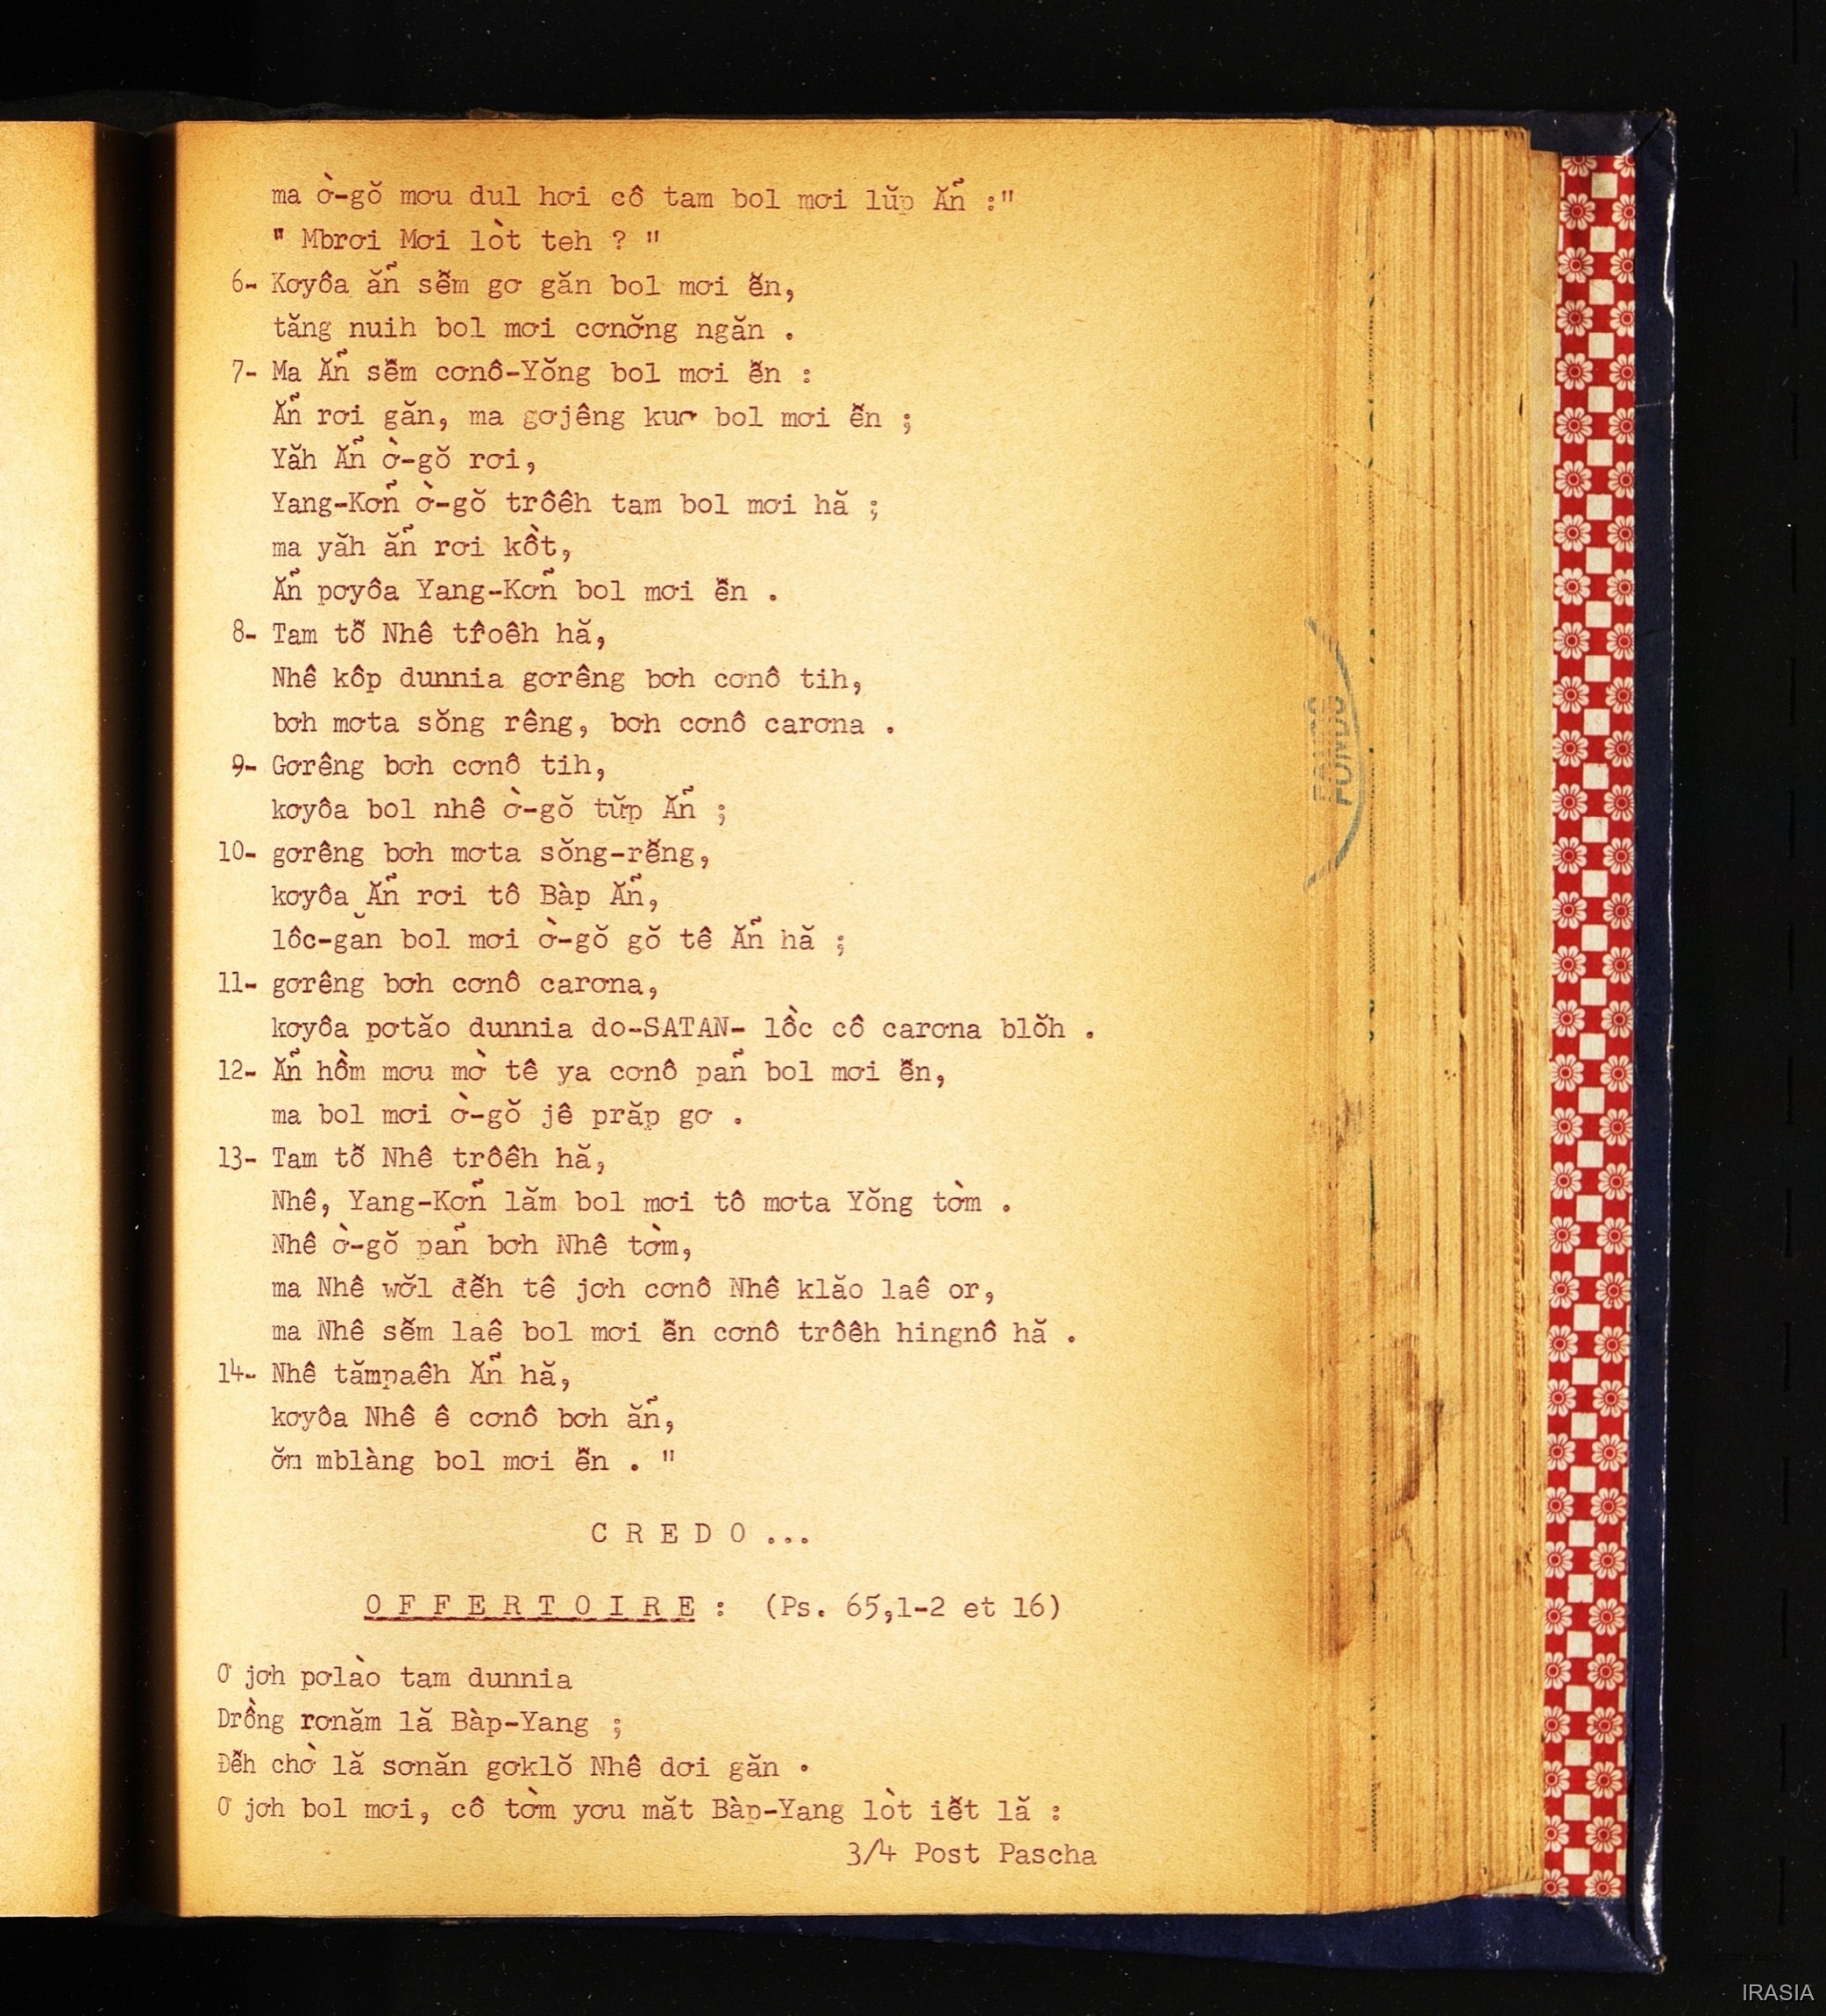 ma ờ-gŏ mơu dul hơi cô tam bol mơi lŭp Ăñ :"
" Mbrơi Mơi lòt teh ? "
6- Kơyôa ăñ sễm gơ găn bol mơi ễn,
tăng nuih bol mơi cơnơ̆ng ngăn .
7- Ma Ăñ sễm cơnô-Yŏng bol mơi ễn :
Ăñ rơi găn, ma gơjêng kuơ bol mơi ễn ;
Yăh Ăñ ờ-gŏ rơi,
Yang-Kơñ ờ-gŏ trôêh tam bol mơi hă ;
ma yăh ăñ rơi kồt,
Ăñ pơyôa Yang-Kơñ bol mơi ễn .
8- Tam tỗ Nhê tr̂oêh hă,
Nhê kôp dunnia gơrêng bơh cơnô tih,
bơh mơta sŏng rêng, bơh cơnô carơna .
9- Gơrêng bơh cơnô tih,
kơyôa bol nhê ờ-gŏ tŭp Ăñ ;
10- gơrêng bơh mơta sŏng-rễng,
kơyôa Ăñ rơi tô Bàp Ăñ,
lôc-găn bol mơi ờ-gŏ gŏ tê Ăñ hă ;
11- gơrêng bơh cơnô carơna,
kơyôa pơtăo dunnia do-SATAN- lồc cô carơna blŏh .
12- Ăñ hồm mơu mờ tê ya cơnô pañ bol mơi ễn,
ma bol mơi ờ-gŏ jê prăp gơ .
13- Tam tỗ Nhê trôêh hă,
Nhê, Yang-Kơñ lăm bol mơi tô mơta Yŏng tờm .
Nhê ờ-gŏ pañ bơh Nhê tờm,
ma Nhê wơ̆l đễh tê jơh cơnô Nhê klăo laê or,
ma Nhê sễm laê bol mơi ễn cơnô trôêh hingnô hă .
14- Nhê tămpaêh Ăñ hă,
kơyôa Nhê ê cơnô bơh ăñ,
ơ̆n mblàng bol mơi ễn . "
C R E D O ...
O F F E R T O I R E : (Ps. 65,1-2 et 16)
Ơ jơh pơlào tam dunnia
Drồng rơnăm lă Bàp-Yang ;
Đễh chờ lă sơnăn gơklŏ Nhê dơi găn .
Ơ jơh bol mơi, cô tờm yơu măt Bàp-Yang lòt iễt lă :
3/4 Post Pascha
FONDS
IRASIA